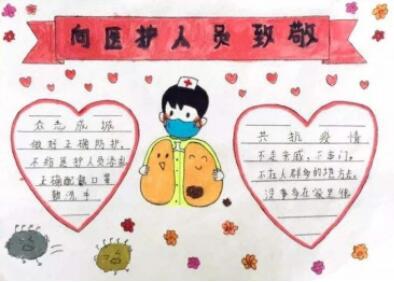 向医护人员致敬
众志成城
做好正确防护,
不给医护人员添乱
正确配戴口罩
勤洗手
共抗疫情
不走亲戚,不串门,
不在人群多的地方走。
没事多在家是福